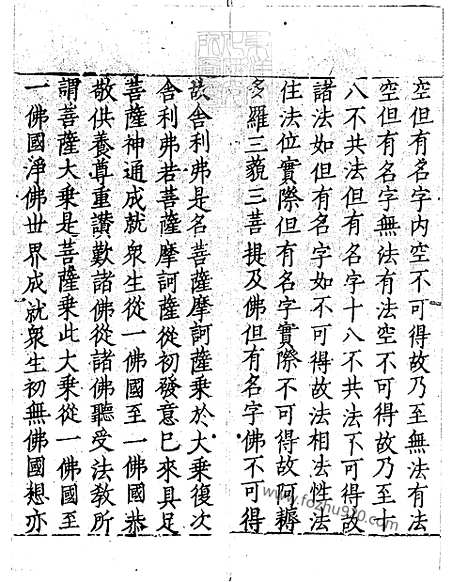 空但有名字內空不可得故乃至無法有法
空但有名字無法有法空不可得故乃至十
八不共法但有名字十八不共法下可得故
諸法如但有名字如不可得故法相法性法
住法位實際但有名字實際不可得故阿耨
多羅三藐三菩提及佛但有名字佛不可得
故舍利弗是名菩薩摩訶薩乘於大乘復次
舍利弗若菩薩摩訶薩從初發意已來具足
菩薩神通成就衆生從一佛國至一佛國恭
敬供養尊重讃歎諸佛從諸佛聽受法教所
謂菩薩大乘是菩薩乘此大乘從一佛國至
一佛國淨佛世界成就衆生初無佛國想亦
www.fozhu920.com